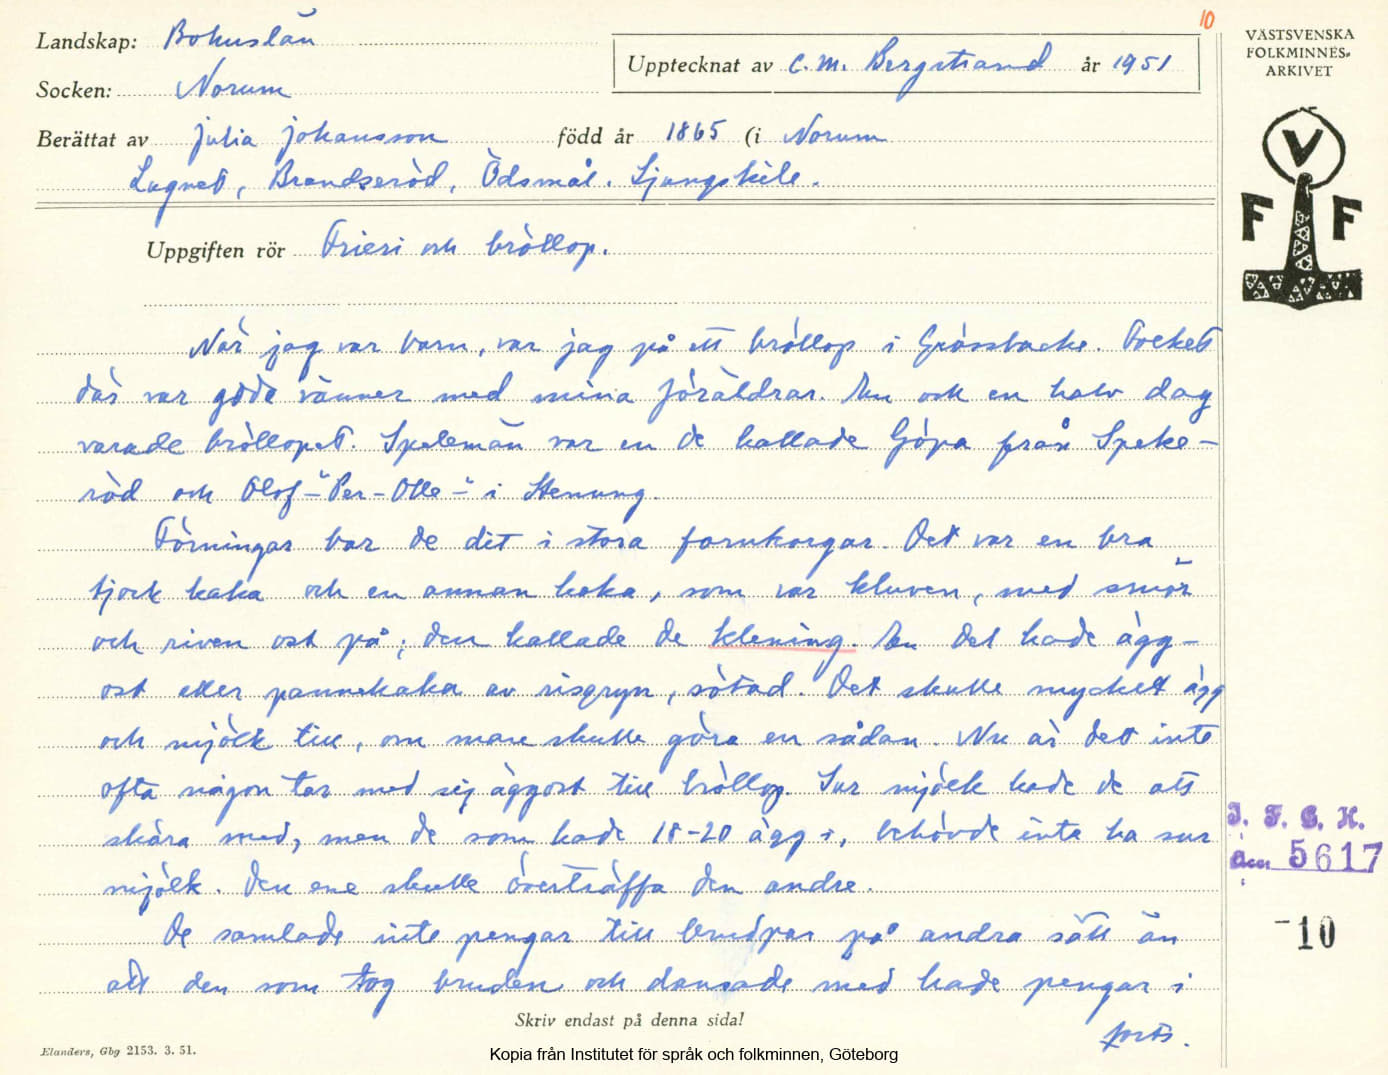 10
Landskap: Bohuslän
Socken: Norum
Upptecknat av C. M. Bergstrand år 1951
Berättat av Julia Johansson född år 1865 (i Norum
Lugnet, Brandseröd, Ödsmål. Ljungskile.
Uppgiften rör Frieri och bröllop.
När jag var barn, var jag på ett bröllop i Gråssbacke. Folket
där var goda vänner med mina föräldrar. En och en halv dag
varade bröllopet. Spelemän var en de kallade Göpa från Speke-
röd och Olof "Per-Olle" i Stenung.
Förningar bar de dit i stora fornkorgar. Det var en bra
tjock kaka och en annan kaka, som var kluven, med smör
och riven ost på; den kallade de klening. En del hade ägg-
ost eller pannekaka av risgryn, sötad. Det skulle mycket ägg
och mjölk till, om man skulle göra en sådan. Nu är det inte
ofta någon tar med sig äggost till bröllop. Sur mjölk hade de att
skära med, men de som hade 18-20 ägg i, behövde inte ha sur
mjölk. Den ene skulle överträffa den andre.
De samlade inte pengar till brudpar på andra sätt än
att den som tog bruden och dansade med hade pengar i
forts.
Skriv endast på denna sida!
Elanders, Gbg 2153. 3. 51.
Kopia från Institutet för språk och folkminnen, Göteborg
VÄSTSVENSKA
FOLKMINNES-
ARKIVET
V
F F
I. F. G. H.
Acc 5617
-10